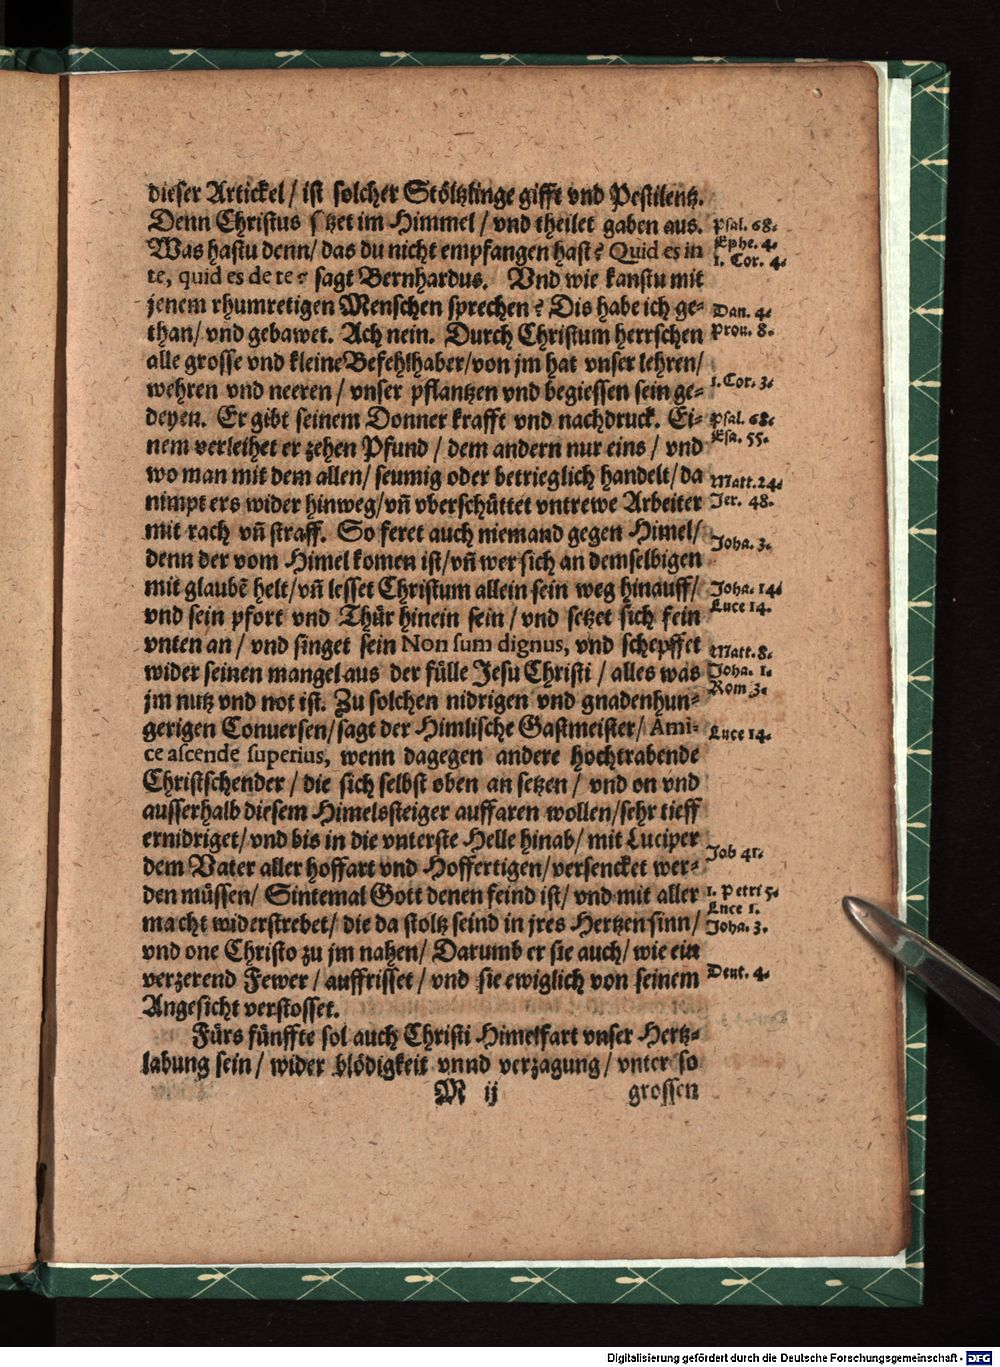 dieser Artickel / ist solcher Stöltzlinge gifft vnd Pestilentz.
Denn Christus sitzet im Himmel / vnd theilet gaben aus.
Psal. 68.
Was hastu denn / das du nicht empfangen hast? Quid es in
Ephe. 4.
1. Cor. 4.
te, quid es de te? sagt Bernhardus. Vnd wie kanstu mit
jenem rhumretigen Menschen sprechen? Dis habe ich ge-
Dan. 4.
than / vnd gebawet. Ach nein. Durch Christum herrschen
Prou. 8.
alle grosse vnd kleine Befehlhaber / von jm hat vnser lehren /
wehren vnd neeren / vnser pflantzen vnd begiessen sein ge-
1. Cor. 3.
deyen. Er gibt seinem Donner krafft vnd nachdruck. Ei-
Psal. 68.
nem verleihet er zehen Pfund / dem andern nur eins / vnd
Esa. 55.
wo man mit dem allen / seumig oder betrieglich handelt / da
Matt. 24.
nimpt ers wider hinweg / vñ vberschüttet vntrewe Arbeiter
Jer. 48.
mit rach vñ straff. So feret auch niemand gegen Himel /
Joha. 3.
denn der vom Himel komen ist / vñ wer sich an demselbigen
mit glaubẽ helt / vñ lesset Christum allein sein weg hinauff /
Joha. 14.
vnd sein pfort vnd Thür hinein sein / vnd setzet sich fein
Luce 14.
vnten an / vnd singet sein Non sum dignus, vnd schepffet
Matt. 8.
wider seinen mangel aus der fülle Jesu Christi / alles was
Joha. 1.
jm nutz vnd not ist. Zu solchen nidrigen vnd gnadenhun-
Rom. 3.
gerigen Conuersen / sagt der Himlische Gastmeister / Ami-
Luce 14.
ce ascende superius, wenn dagegen andere hochtrabende
Christschender / die sich selbst oben an setzen / vnd on vnd
ausserhalb diesem Himelssteiger auffaren wollen / sehr tieff
ernidriget / vnd bis in die vnterste Helle hinab / mit Luciper
Job 41.
dem Vater aller hoffart vnd Hoffertigen / versencket wer-
den müssen / Sintemal Gott denen feind ist / vnd mit aller
1. Petri 5.
macht widerstrebet / die da stoltz seind in jres Hertzen sinn /
Luce 1.
Joha. 3.
vnd one Christo zu jm nahen / Darumb er sie auch / wie ein
verzerend Fewer / auffrisset / vnd sie ewiglich von seinem
Deut. 4.
Angesicht verstosset.
Fürs fünffte sol auch Christi Himelfart vnser Hertz-
labung sein / wider blödigkeit vnnd verzagung / vnter so
M ij
grossen
Digitalisierung gefördert durch die Deutsche Forschungsgemeinschaft - DFG